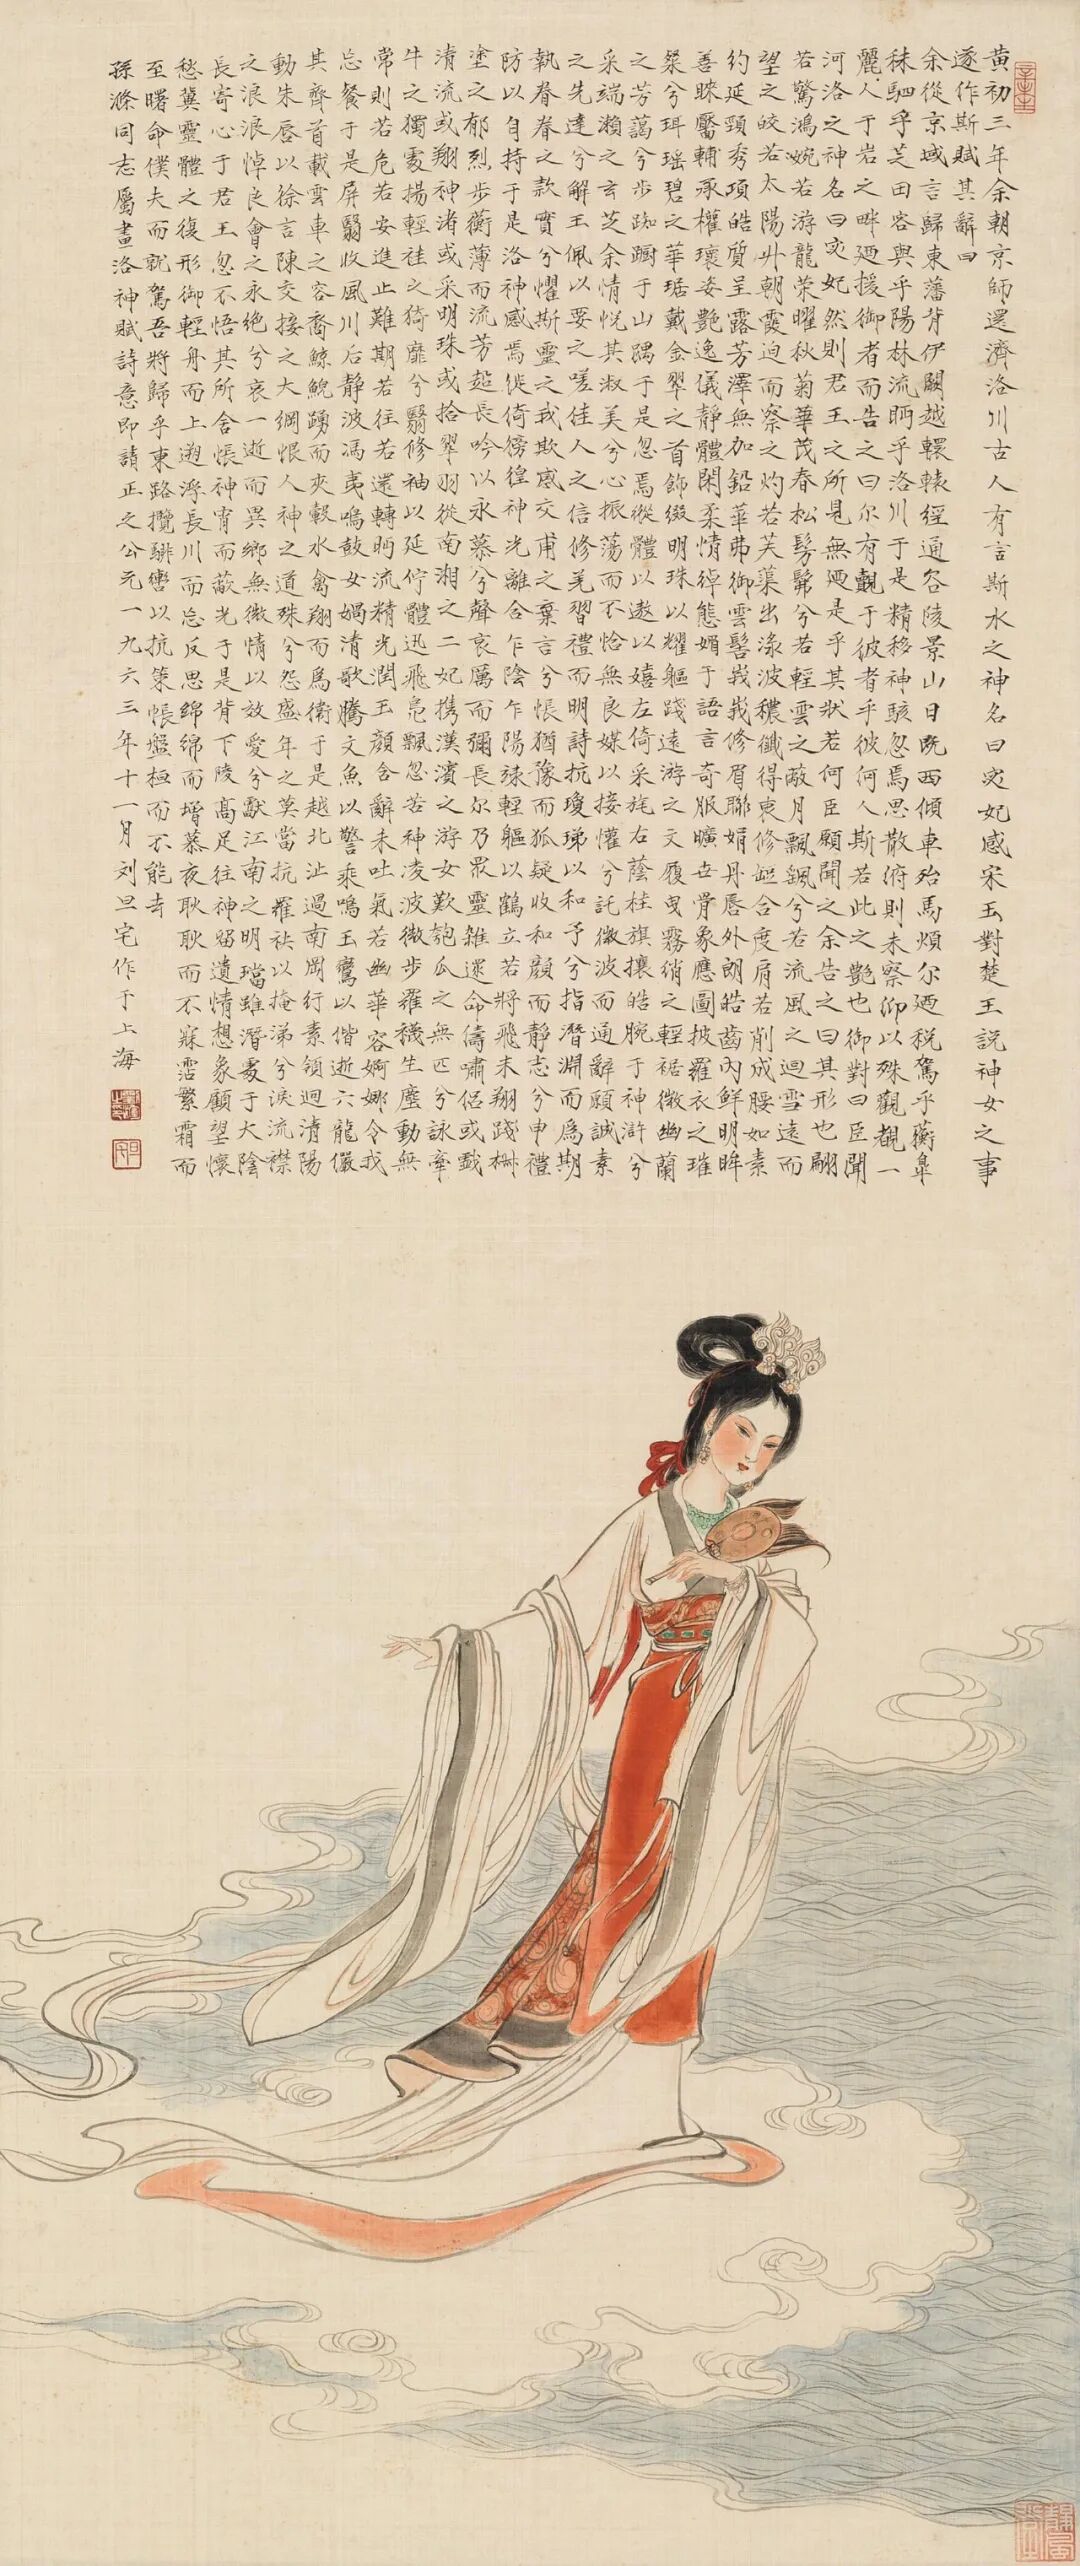 黄初三年余朝京師還濟洛川古人有言斯水之神名曰宓妃感宋玉對楚王説神女之事
遂作斯賦其辭曰
余從京域言歸東藩背伊闕越轘轅經通谷陵景山日既西傾車殆馬煩尔廼税駕乎蘅皐
秣駟乎芝田容與乎陽林流眄乎洛川于是精移神駭忽焉思散俯則未察仰以殊觀覩一
麗人于岩之畔廼援御者而告之曰尔有覿于彼者乎彼何人斯若此之艷也御對曰臣聞
河洛之神名曰宓妃然則君王之所見無廼是乎其狀若何臣願聞之余告之曰其形也翩
若驚鴻婉若游龍荣曜秋菊華茂春松髣髴兮若輕雲之蔽月飄飖兮若流風之迴雪遠而
望之皎若太陽升朝霞迫而察之灼若芙蕖出渌波穠纖得衷修短合度肩若削成腰如素
約延頸秀項皓質呈露芳澤無加鉛華弗御雲髻峩峩修眉聯娟丹唇外朗皓齒内鮮明眸
善睞靨輔承權瓌姿艷逸儀静體閑柔情綽態媚于語言奇服曠世骨象應圖披羅衣之璀
粲兮珥瑶碧之華琚戴金翠之首飾綴明珠以耀軀踐遠游之文履曳霧綃之輕裾微幽蘭
之芳藹兮步踟蹰于山隅于是忽焉縱體以遨以嬉左倚采旄右蔭桂旗攘皓腕于神滸兮
采湍瀨之玄芝余情悦其淑美兮心振蕩而不怡無良媒以接懽兮託微波而通辭願誠素
之先達兮解玉佩以要之嗟佳人之信修羌習禮而明詩抗瓊珶以和予兮指潛淵而爲期
執眷眷之款實兮懼斯靈之我欺感交甫之棄言兮悵猶豫而狐疑收和顔而静志兮申禮
防以自持于是洛神感焉徙倚徬徨神光離合乍陰乍陽竦輕軀以鶴立若將飛未翔踐椒
塗之郁烈步蘅薄而流芳超長吟以永慕兮聲哀厲而彌長尔乃衆靈雜遝命儔嘯侣或戲
清流或翔神渚或采明珠或拾翠羽從南湘之二妃携漢濱之游女歎匏瓜之無匹兮詠牽
牛之獨處揚輕袿之猗靡兮翳修袖以延佇體迅飛鳧飄忽若神凌波微步羅襪生塵動無
常則若危若安進止難期若往若還轉眄流精光潤玉顔含辭未吐氣若幽華容婀娜令我
忘餐于是屏翳收風川后静波馮夷鳴鼓女媧清歌騰文魚以警乘鳴玉鸞以偕逝六龍儼
其齊首載雲車之容裔鯨鯢踴而夾轂水禽翔而爲衛于是越北沚過南岡行素領迴清陽
動朱唇以徐言陳交接之大綱恨人神之道殊兮怨盛年之莫當抗羅袂以掩涕兮淚流襟
之浪浪悼良會之永絶兮哀一逝而異鄉無微情以效愛兮獻江南之明璫雖潛處于大陰
長寄心于君王忽不悟其所舍悵神宵而蔽光于是背下陵高足往神留遺情想象顧望懷
愁冀靈體之復形御輕舟而上遡浮長川而忘反思綿綿而增慕夜耿耿而不寐霑繁霜而
至曙命僕夫而就駕吾將歸乎東路攬騑轡以抗策悵盤桓而不能去
孫滌同志屬畫洛神賦詩意即請正之公元一九六三年十一月刘旦宅作于上海